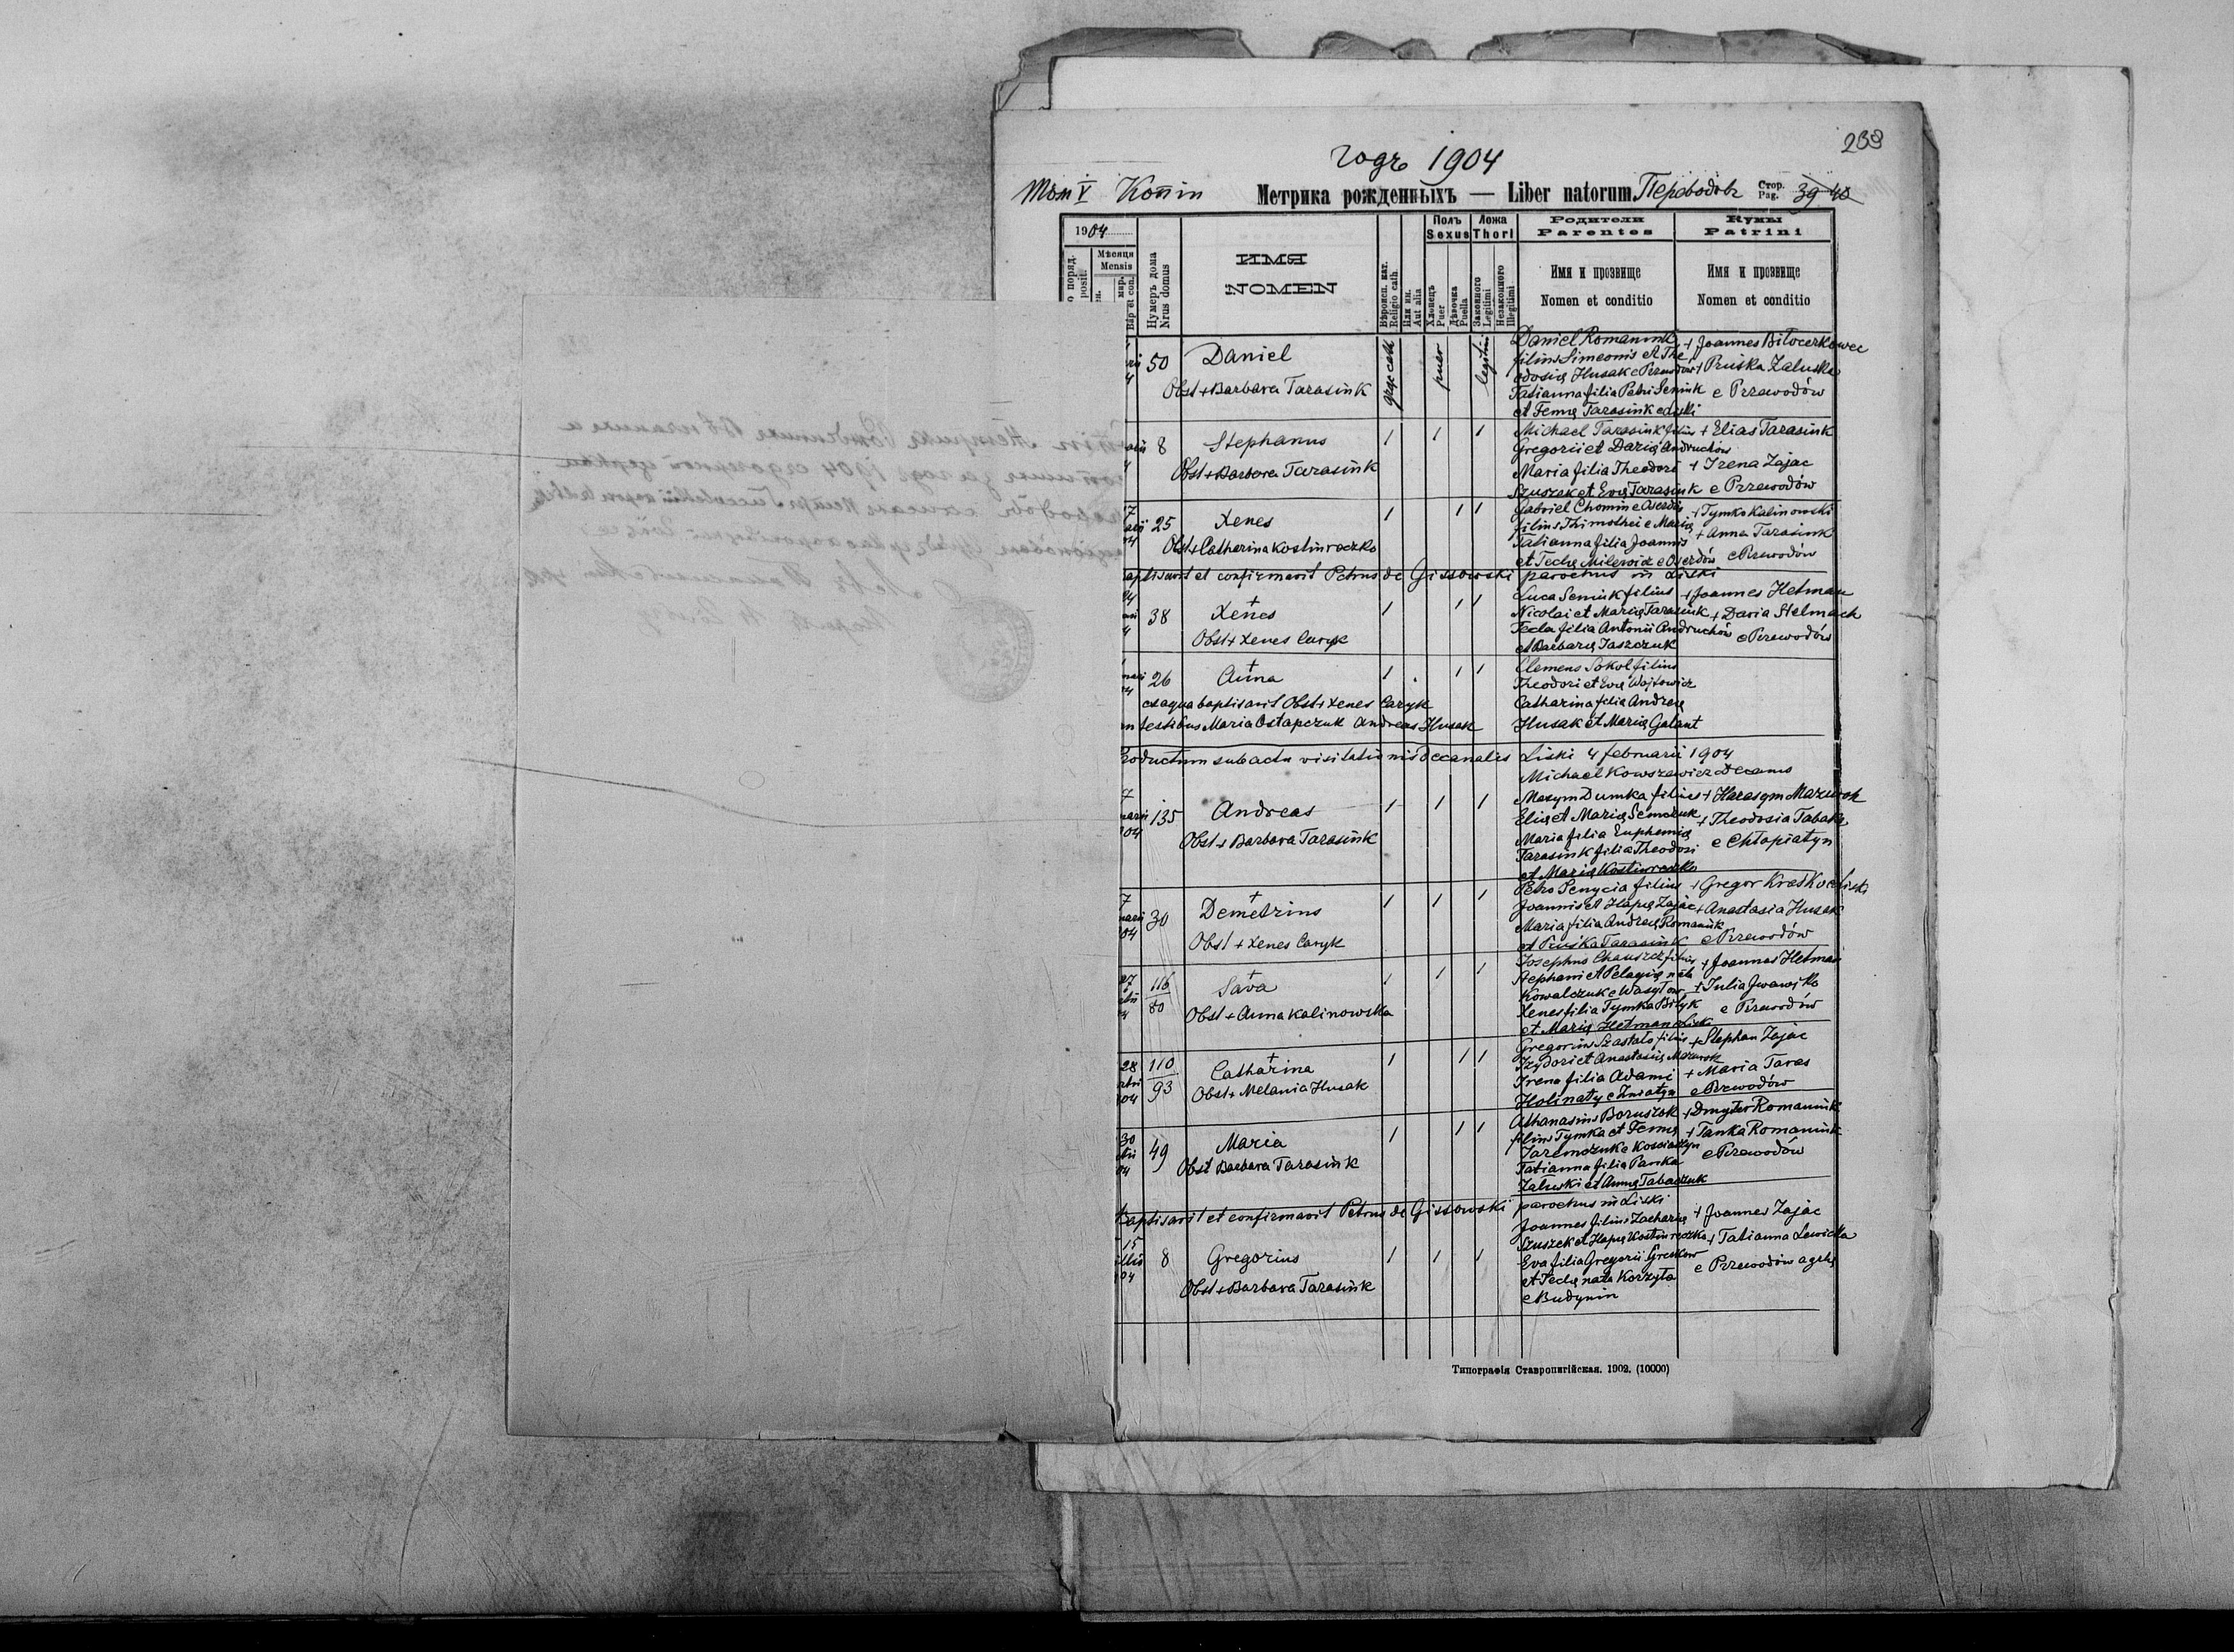 233
годъ 1904
Том V Копія Метрика рожденныхъ — Liber natorum Переводовъ Стор. Pag. 39-40
1904
Полъ Sexus
Ложа Thori
Родители Parentes
Кумы Patrini
Мѣсяця Mensis
Нумеръ дома Nrus domus
ИМЯ
NOMEN
Вѣроисп. кат. Religio cath.
Или ин. Aut alia
Хлопецъ Puer
Дѣвочка Puella
Законного Legitimi
Незаконного Illegitimi
Имя и прозвище
Nomen et conditio
Имя и прозвище
Nomen et conditio
50 Daniel
Obst + Barbara Tarasiuk
puer
Daniel Romaniuk
filius Simeonis et The
odosię Husak e Przewodów
Tatianna filia Petri Seniuk
et Fennę Tarasiuk
+ Joannes Biłocerkowec
+ Pruska Zaluska
e Przewodów
8 Stephanus
Obst + Barbara Tarasiuk
Michael Tarasiuk filius
Gregorii et Darię Andruchów
Maria filia Theodori
Szuszek et Evę Tarasiuk
+ Elias Tarasiuk
+ Irena Zajac
e Przewodów
25 Xenes
Obst + Catherina Kostiureczko
Gabriel Chomin e Oserdów
filius Thimothei e Marię
Tatianna filia Joannis
et Teclę Milewicz e Oserdów
+ Tymko Kalinowski
+ Anna Tarasiuk
e Przewodów
aptisavit et confirmavit Petrus de Gissowski parochus in Liski
38 Xenes
Obst + Xenes Caryk
Luca Seniuk filius
Nicolai et Marię Tarasiuk
Tecla filia Antonii Andruchów
et Barbarę Jaszczuk
+ Joannes Hetman
+ Daria Stelmach
e Przewodów
26 Anna
ex aqua baptisavit Obst + Xenes Caryk
testibus Maria Ostapczuk Andreas Husak
Clemens Sokol filius
Theodori et Evę Wojtowicz
Catharina filia Andreę
Husak et Marię Galant
Productum sub actu visitationis decanalis Liski 4 februarii 1904
Michael Kowszewicz Decanus
135 Andreas
Obst + Barbara Tarasiuk
Maxym Dumka filius
Elię et Marię Semczuk
Maria filia Euphemię
Tarasiuk filia Theodori
et Marię Kostiureczko
+ Harasym Mazurok
+ Theodosia Tabaka
e Chłopiatyn
30 Demetrius
Obst + Xenes Caryk
Petro Senycia filius
Joannis et Hapię Zajac
Maria filia Andreę Romaniuk
et Pruśka Tarasiuk
+ Gregor Kraśko e Liski
+ Anastasia Husak
e Przewodów
27 116/80 Sava
Obst + Anna Kalinowska
Stephani et Pelagię nata
Kowalczuk e Wasyłow
Xenes filia Tymka Biłyk
et Marię Hetman e Liski
+ Joannes Hetman
+ Julia Iwanejko
e Przewodów
28 110/93 Catharina
Obst + Melania Husak
Gregorius Szastało filius
Izydori et Anastasię Mazurok
Irena filia Adami
Holinaty e Żniatyn
+ Stephan Zajac
+ Maria Taras
e Przewodów
30 49 Maria
Obst Barbara Tarasiuk
Athanasius Boruszok
filius Tymka et Fennę
Jaremczuk e Kościaszyn
Tatianna filia Pańka
Zaluski et Annę Tabaczuk
+ Dmyter Romaniuk
+ Tanka Romaniuk
e Przewodów
Baptisavit et confirmavit Petrus de Gissowski parochus in Liski
15 8 Gregorius
Obst + Barbara Tarasiuk
Joannes filius Zacharię
Szuszek et Hapię Kostiureczko
Eva filia Gregorii Greskow
et Teclę nata Korzyta
e Budynin
+ Joannes Zajac
+ Tatianna Lewicka
e Przewodów
Типографія Ставропигійская. 1902. (10000)